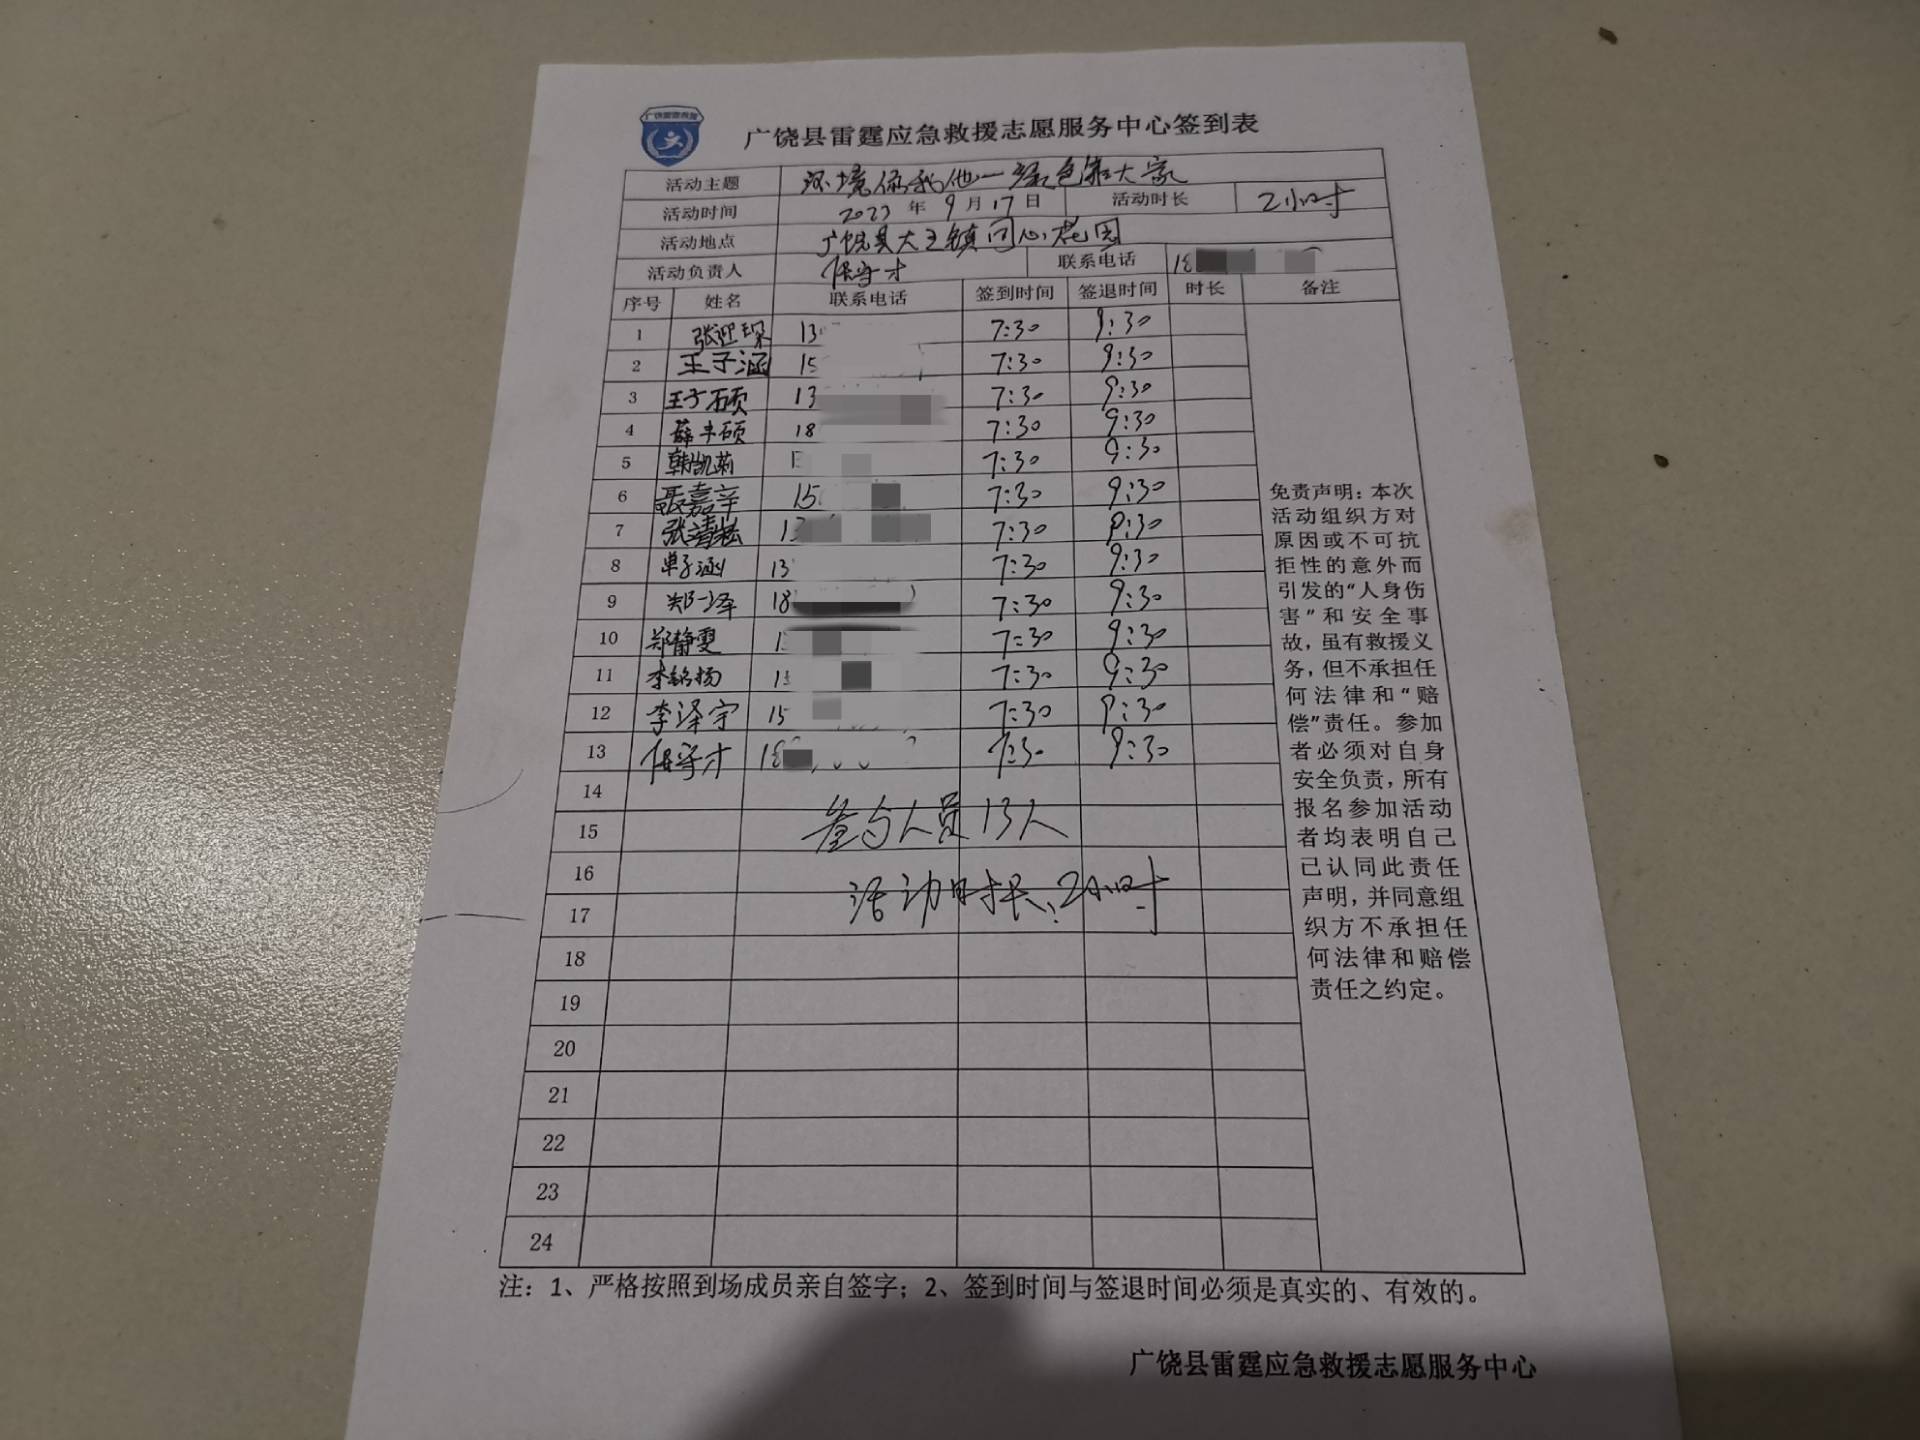 广饶县雷霆应急救援志愿服务中心签到表
活动主题 环境你我他一绿色靠大家
活动时间 2023年9月17日 活动时长 2小时
活动地点 广饶县大王镇同心花园
活动负责人 任守才 联系电话 18
序号 姓名 联系电话 签到时间 签退时间 时长 备注
1 张迎琛 13 7:30 9:30
2 王子涵 15 7:30 9:30
3 王子硕 13 7:30 9:30
4 薛丰硕 18 7:30 9:30
5 韩凯莉 7:30 9:30
6 聂嘉辛 15 7:30 9:30
7 张靖 13 7:30 9:30
8 单子涵 13 7:30 9:30
9 郑一泽 18 7:30 9:30
10 郑静雯 1 7:30 9:30
11 李铭扬 1 7:30 9:30
12 李泽宇 15 7:30 9:30
13 任守才 18 7:30 9:30
14
15 参与人员13人
16
17 活动时长:2小时
18
19
20
21
22
23
24
免责声明：本次
活动组织方对
原因或不可抗
拒性的意外而
引发的“人身伤
害”和安全事
故，虽有救援义
务，但不承担任
何法律和“赔
偿”责任。参加
者必须对自身
安全负责，所有
报名参加活动
者均表明自己
已认同此责任
声明，并同意组
织方不承担任
何法律和赔偿
责任之约定。
注：1、严格按照到场成员亲自签字；2、签到时间与签退时间必须是真实的、有效的。
广饶县雷霆应急救援志愿服务中心